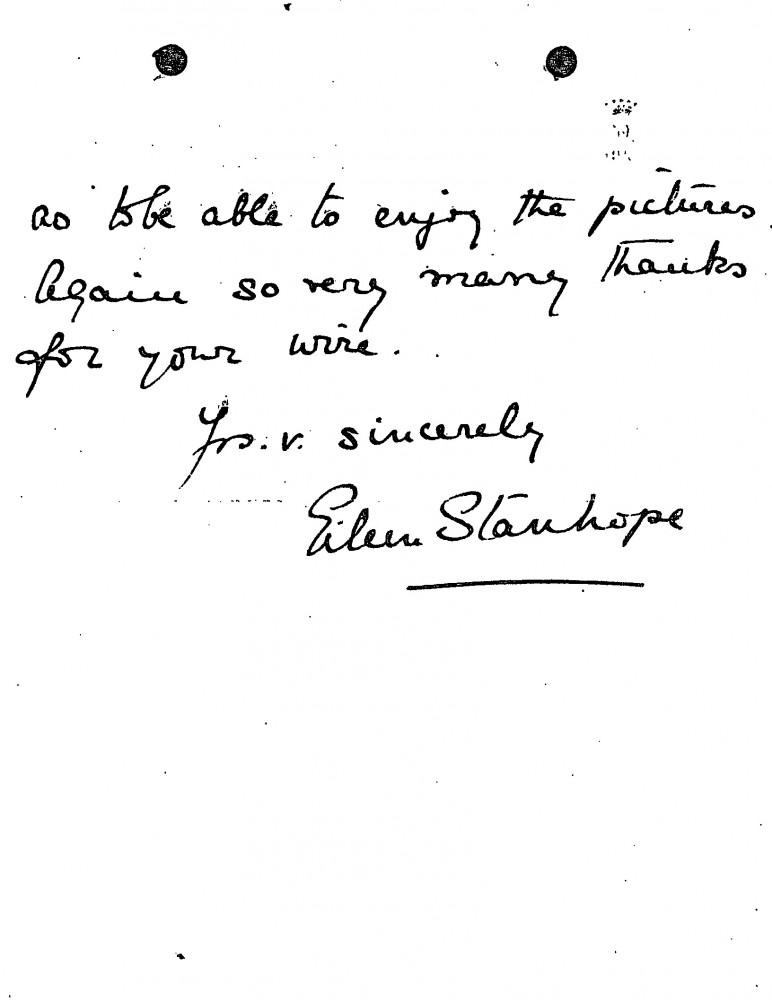 as to be able to enjoy the pictures.
Again so very many thanks
for your wire.
Yrs. v. sincerely
Eileen Stanhope